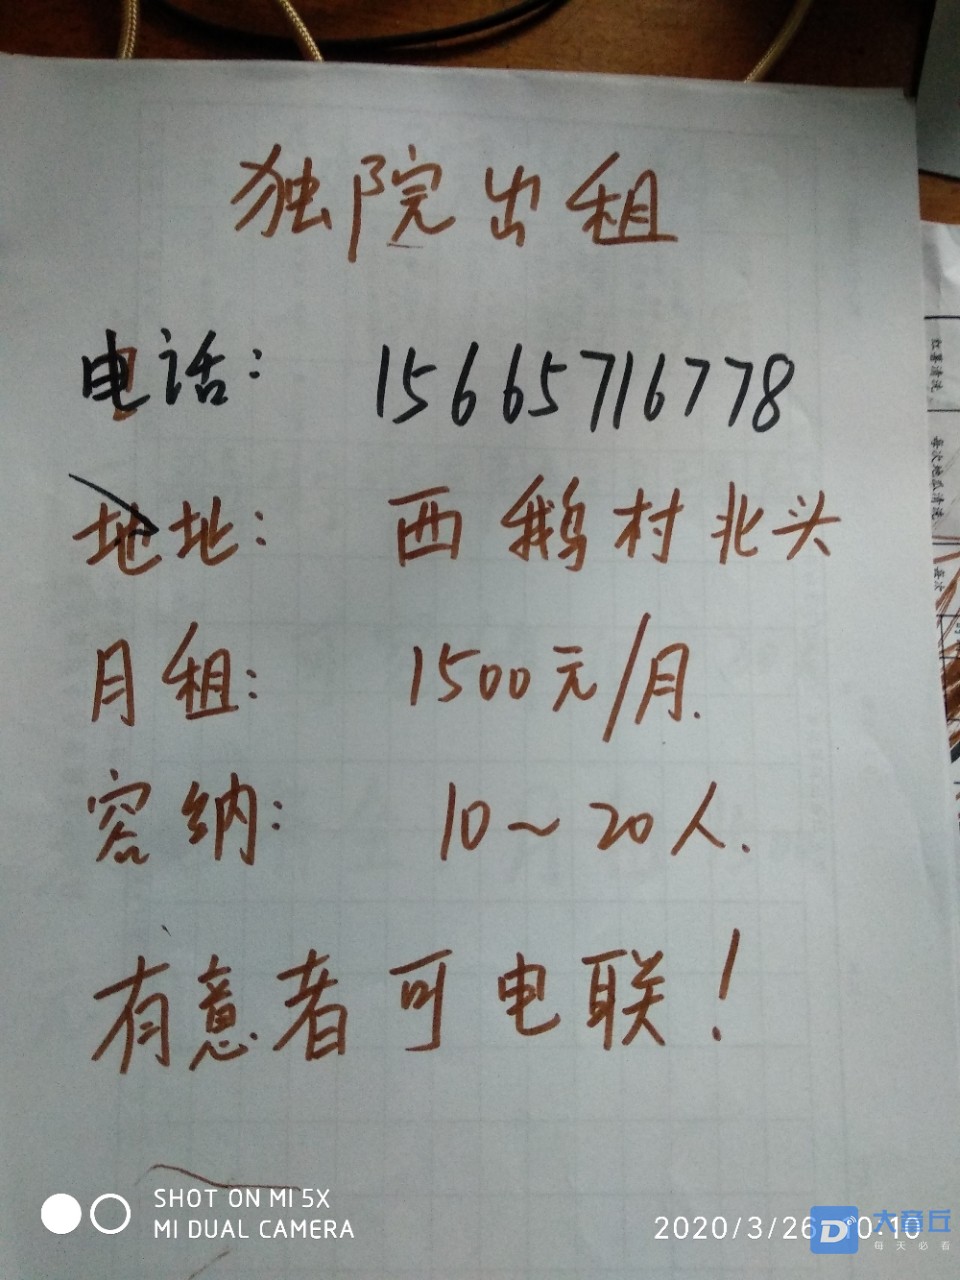 独院出租
电话: 15665716778
地址: 西鹅村北头
月租: 1500元/月.
容纳: 10~20人.
有意者可电联!
红薯清洗
每次地瓜清洗
每次
SHOT ON MI 5X
MI DUAL CAMERA
2020/3/26 10:10
大章丘
每天必看